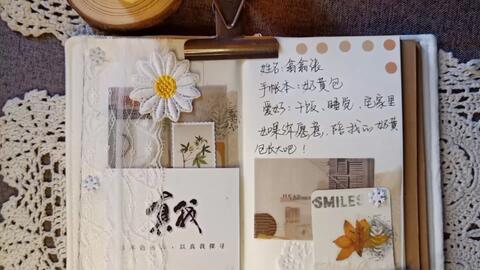 姓名：翕翕张
手帐本：奶黄包
爱好：干饭、睡觉、宅家里
如果你愿意，陪我的奶黄
包长大吧！
SMILES
我
以真我探寻